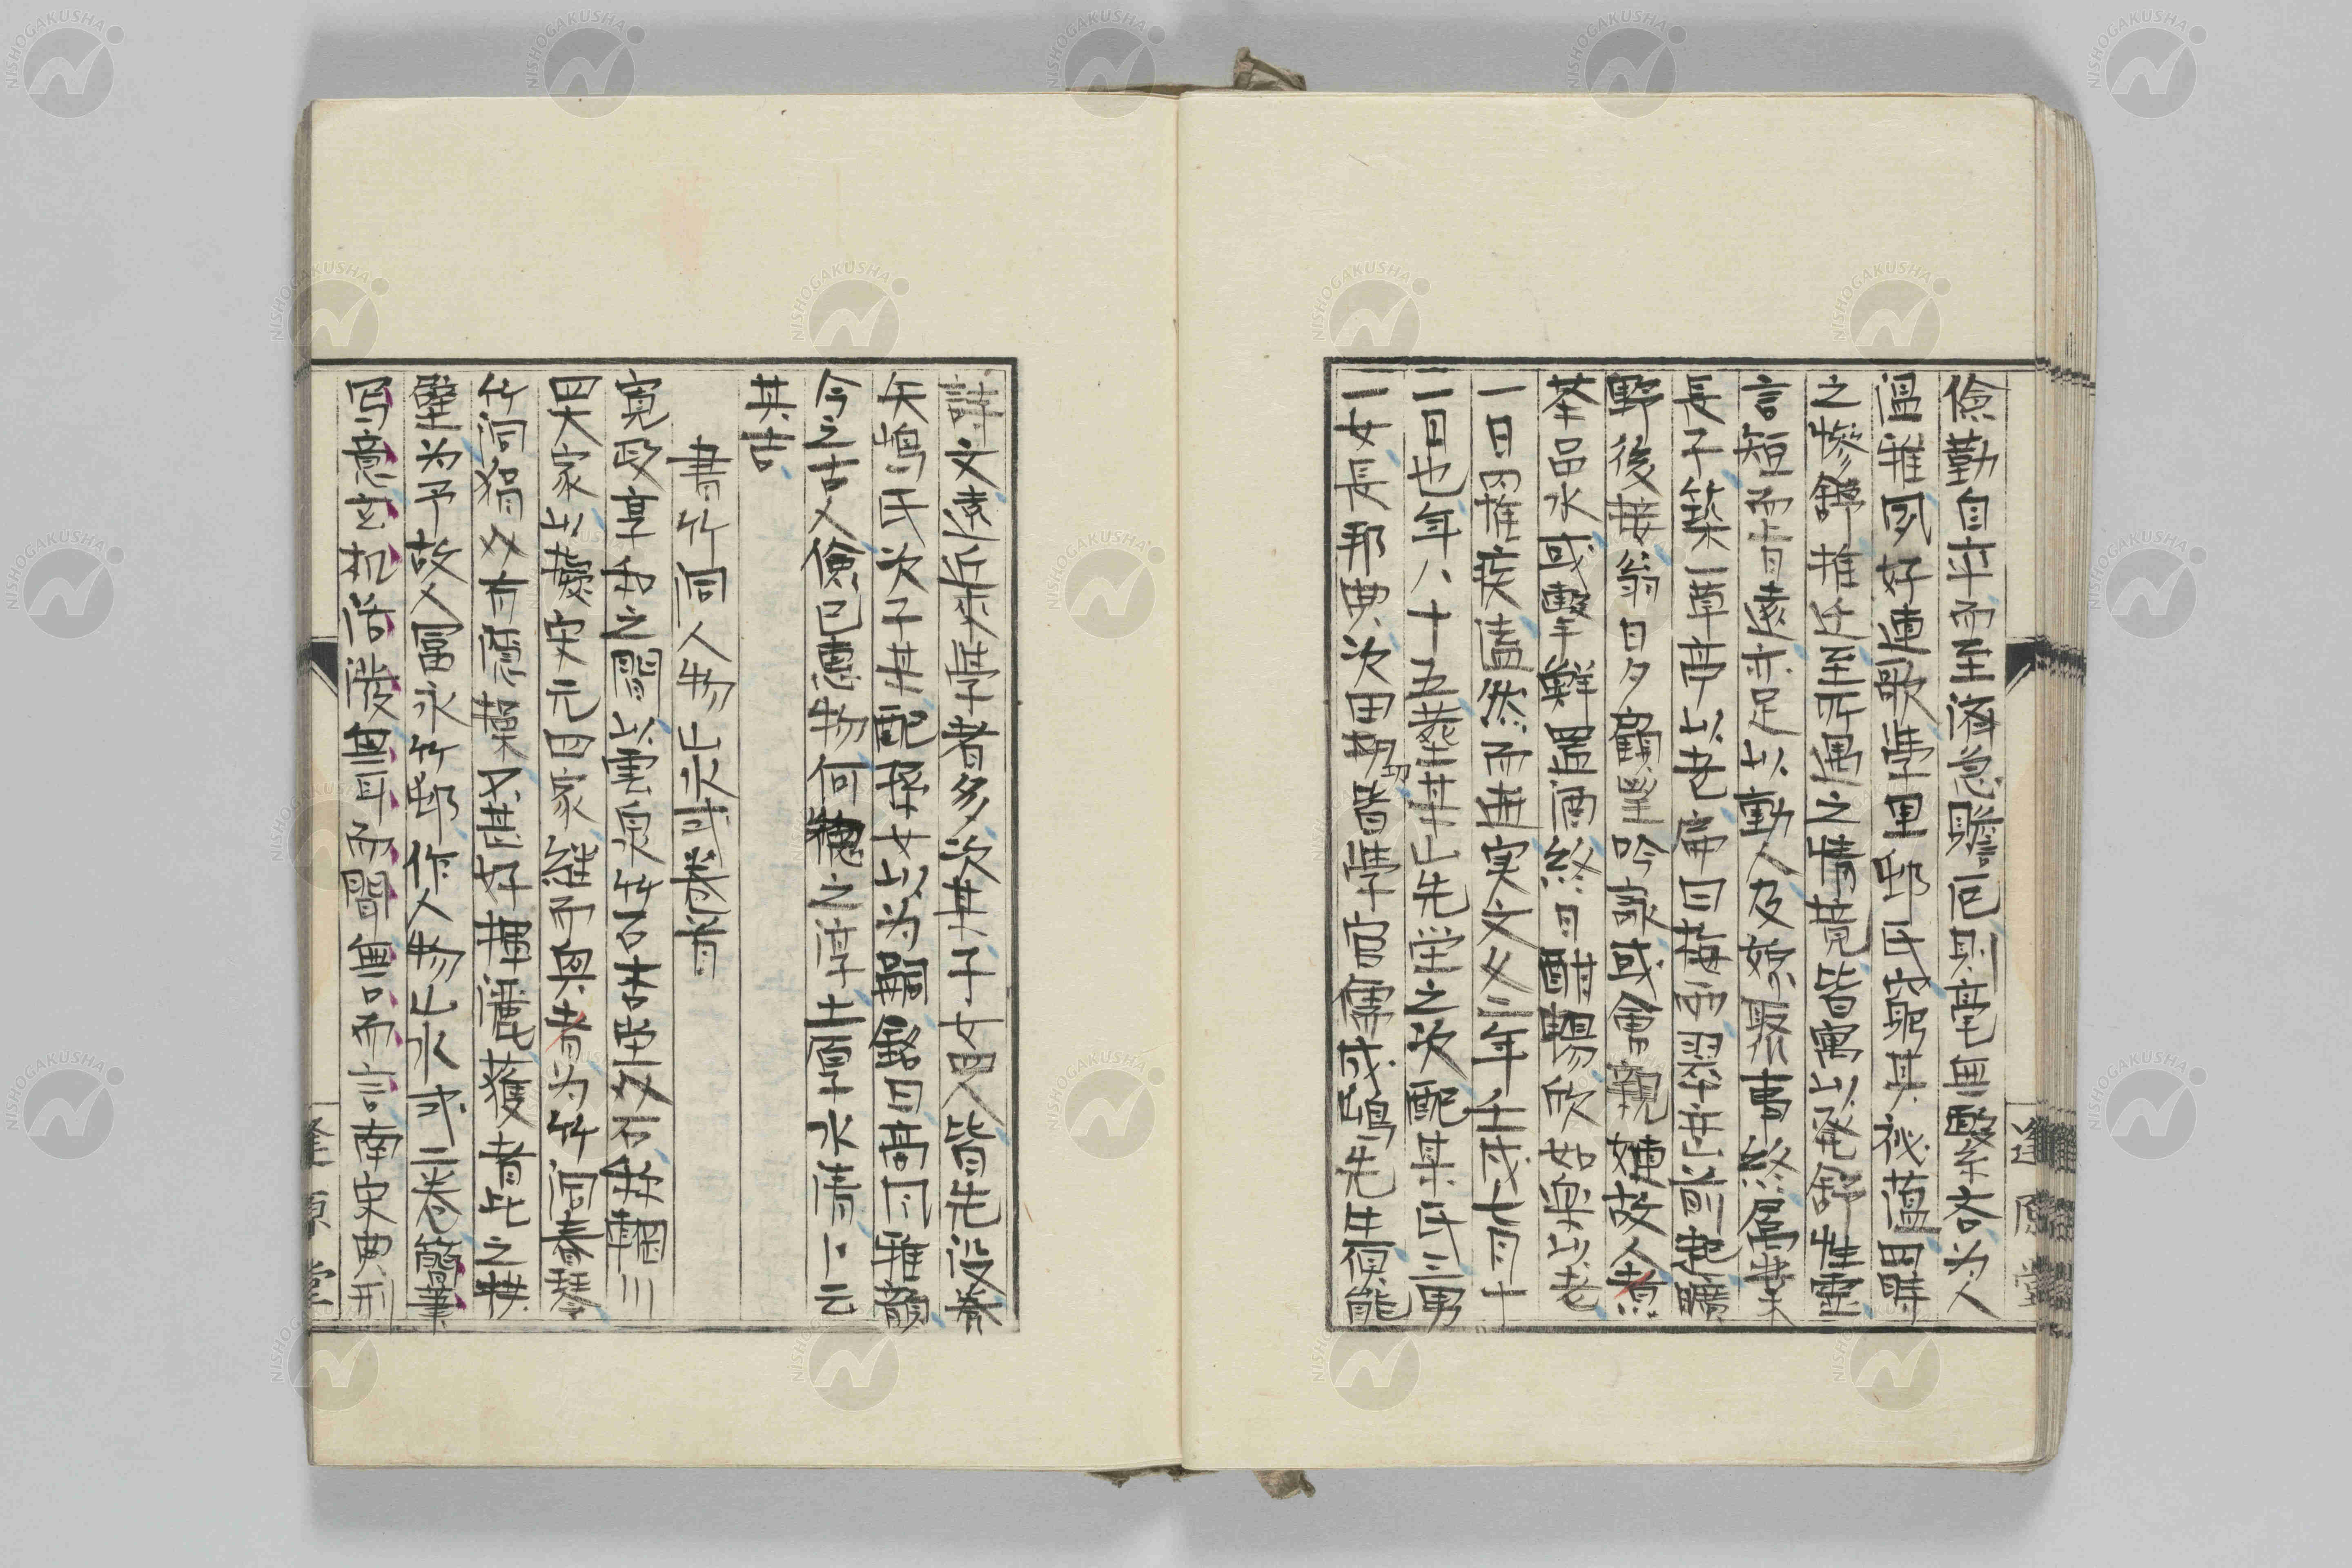 儉勤自奉而至濟急贍厄則毫無慳吝為人
溫雅夙好連歌學里邨氏窮其祕蘊四時
之慘舒推迁至所遇之情境皆寓以発舒性靈
言短而旨遠亦足以動人及嫁娶事終屬業
長子築一草亭以老扁曰莓而翠其前起曠
野後接翁日夕寢坐吟哦或會親姻故人煮
茶品水或擊鮮置酒終日酣暢欣如樂以老
一日罹疾溘然而逝実文久二年壬戌十月十
二日也年八十五葬某山先塋之次配某氏三男
一女長邦典次田切皆學官儒成嶋先生頗能
逢原堂
詩文遠近来學者多次其子女四人皆先没養
矢嶋氏次子某配孫女以為嗣銘曰高風雅韻
今之古人儉己惠物何媿之淳土厚水清云云
其吉
書竹洞人物山水式卷首
寛政享和之間以雲泉竹石
四大家以擬宋元四家維而興者為竹洞春琴
竹洞狷介有廉操又甚好揮灑獲者比之拱
璧为予故人冨永竹邨作人物山水式二卷簡筆
写意玄机活潑無耳而聞無言而言南宋典刑
逢原堂
NISHOGAKUSHA